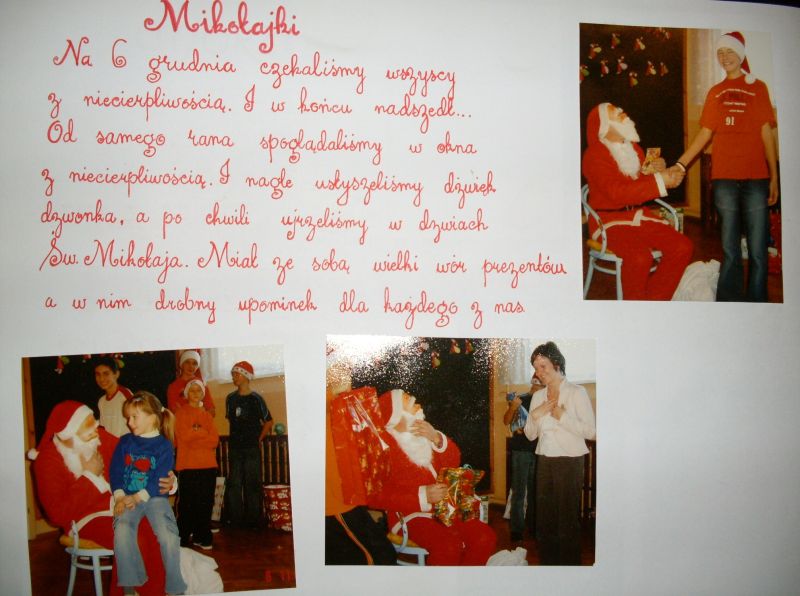 Mikołajki
Na 6 grudnia czekaliśmy wszyscy
z niecierpliwością. I w końcu nadszedł...
Od samego rana spoglądaliśmy w okna
z niecierpliwością. I nagle usłyszeliśmy dźwięk
dzwonka, a po chwili ujrzeliśmy w dzwiach
Św. Mikołaja. Miał ze sobą wielki wór prezentów
a w nim drobny upominek dla każdego z nas
91